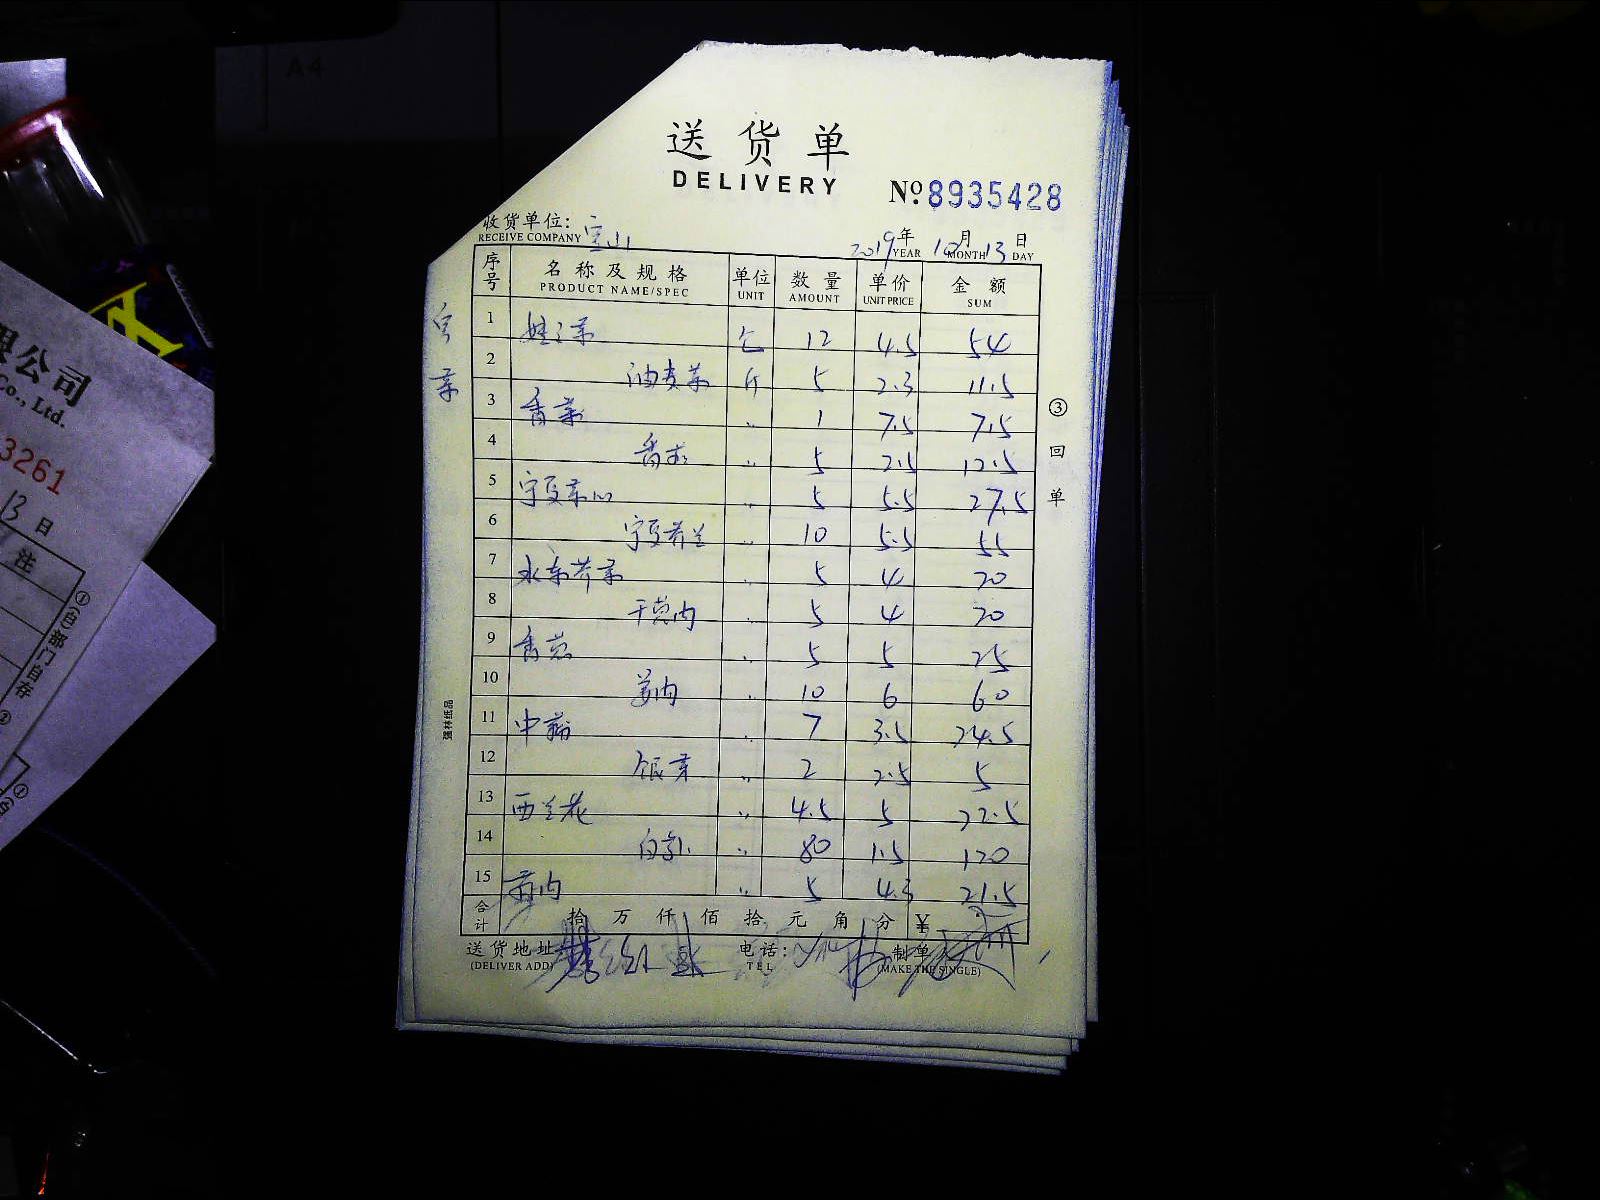 A4
送货单
DELIVERY
№ 8935428
收货单位: 宝山
RECEIVE COMPANY
2019年 10月 13日
YEAR MONTH DAY
序号 名称及规格 单位 数量 单价 金额
PRODUCT NAME/SPEC UNIT AMOUNT UNIT PRICE SUM
1 娃娃菜 12 4.5 54
2 油麦菜 斤 5 2.3 11.5
3 香菜 〃 1 7.5 7.5
4 香芹 〃 5 2.5 12.5
5 宁夏菜心 〃 5 5.5 27.5
6 宁夏芥兰 〃 10 5.5 55
7 水东芥菜 〃 5 4 20
8 干葱肉 〃 5 4 20
9 香葱 〃 5 5 25
10 姜肉 〃 10 6 60
11 〃 7 3.5 24.5
12 银芽 〃 2 2.5 5
13 西兰花 〃 4.5 5 22.5
14 〃 80 1.5 120
15 〃 5 4.3 21.5
合计 拾 万 仟 佰 拾 元 角 分 ¥
送货地址 电话: 制单
(DELIVER ADD) TEL (MAKE THE SINGLE)
③回单
强林纸品
限公司
Co., Ltd.
3261
13日
注
①(白)部门自存
②